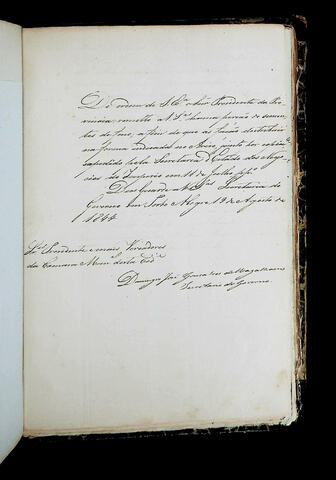 De ordem de S. Exª o Snr. Presidente da Pro
vincia, remetto a VSªs huma porção de semen
tes de fumo, a fim de que as fação destribuir
na forma indicada no Aviso junto por copia
expedido pela Secretaria d'Estado dos Nego
cios do Imperio em 11 de Julho
Deos Guarde a VSªs Secretaria do
Governo em Porto Alegre 19 de Agosto de
1844
Snr. Presidente e mais Vereadores
da Camara Munal desta Cidª
Domingos José Gonçalves de Magalhaens
Secretario do Governo